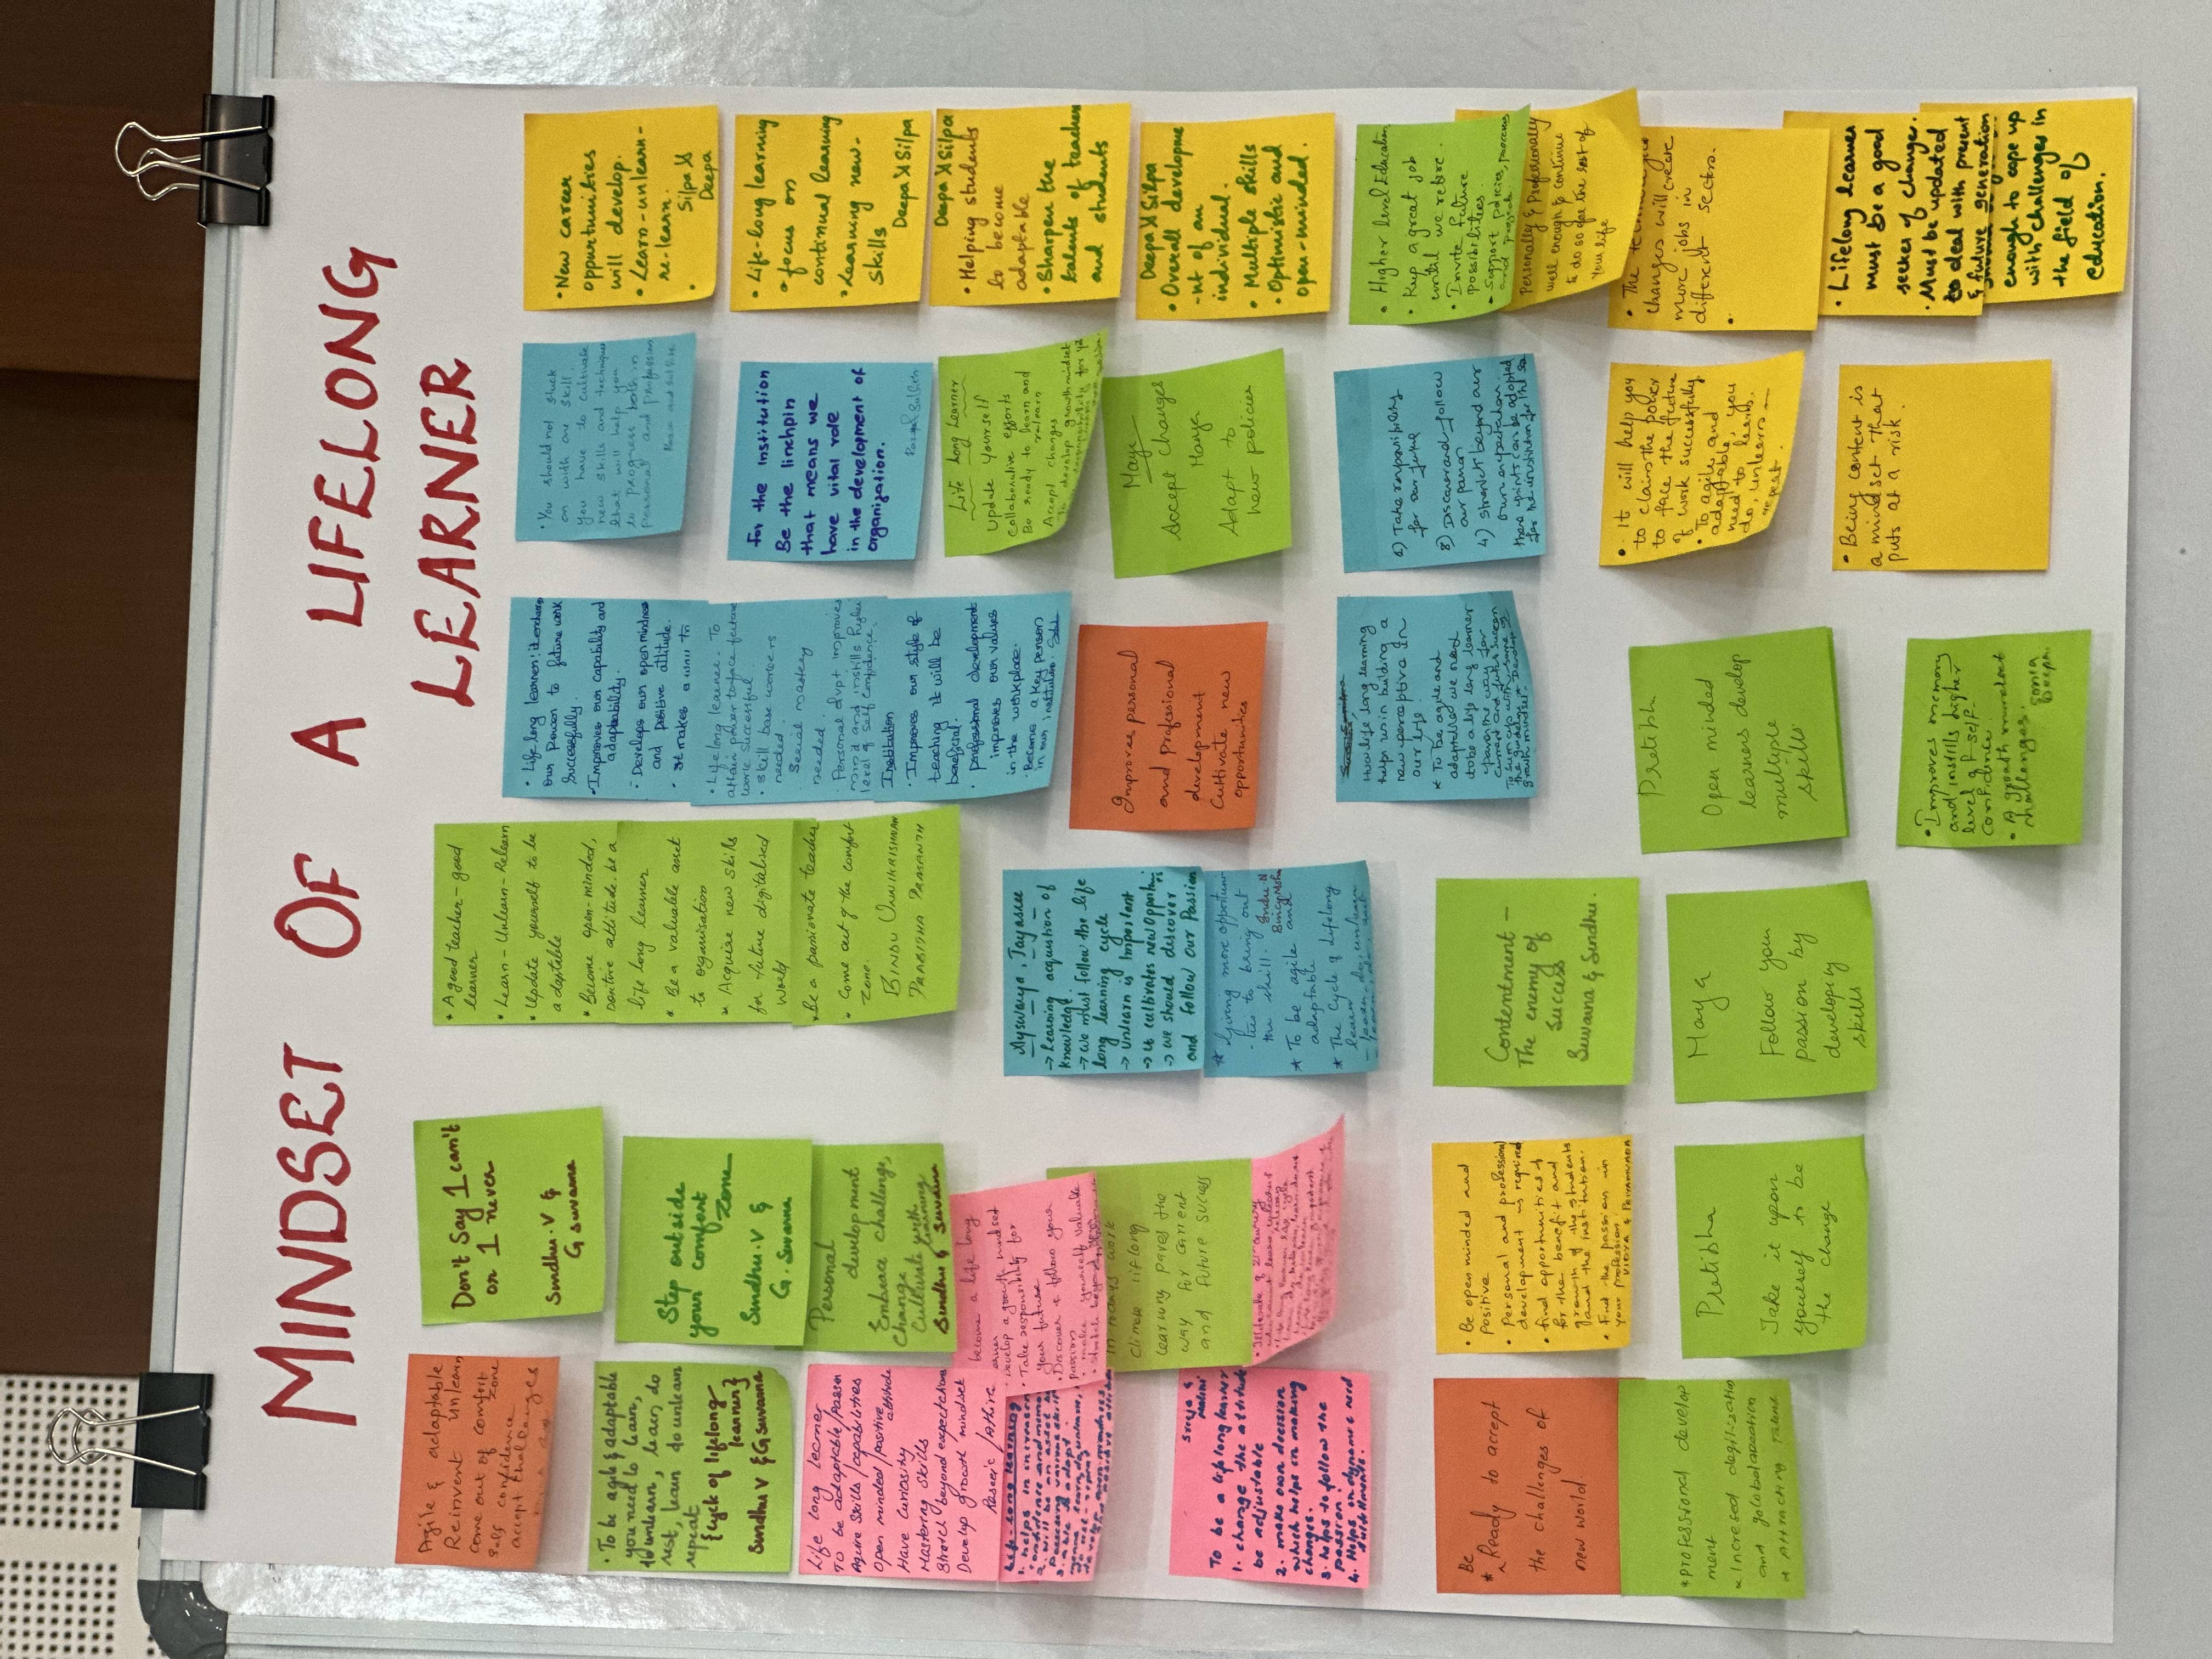 MINDSET OF A LIFELONG
LEARNER
Agile & adaptable
Reinvent unlearn
come out of comfort
zone
self confidence
accept challenges
Don't Say I can't
or I never
Sindhu.V &
G Suvarna
• A good teacher - good
learner
• Learn - Unlearn - Relearn
• Update yourself to be
adaptable
• Become open-minded,
positive attitude. be a
life long learner
* Be a valuable asset
to organisation
* Acquire new skills
for future digitalised
world
* Be a passionate teacher
• Come out of the comfort
zone.
BINDU UNNIKRISHNAN
PRABISHA PRASANTH
• Life long learner: it enchances
our power to future work
successfully.
• Improves our capability and
adaptability.
• Develops our open mindness
and positive attitude.
• Life long learner: To
attain power to face future
work successful
• Skill base workers
needed.
Special mastery
needed.
• Personal dvpt improves
mind and instills higher
level of self confidence.
Institution
• Improves our style of
teaching it will be
beneficial.
• professional development
improves our values
in the workplace.
• Become a key person
in our institution.
• You should not stuck
on with one skill.
you have to cultivate
new skills and techniques
that will help you
to progress both in
personal and profession
• New career
opportunities
will develop.
• Learn-unlearn-
re-learn.
• Silpa &
Deepa
• To be agile & adaptable
you need to learn,
to unlearn, learn, do
rest, learn to unlearn
repeat
{cycle of lifelong
learner}
Sindhu V & G Suvarna
Step outside
your comfort
zone
Sindhu.V &
G. Suvarna
For the institution
Be the linchpin
that means we
have vital role
in the development of
organization.
• Life-long learning
• focus on
continual learning
• Learning new-
skills
Deepa & Silpa
Life long learner
To be adaptable/passion
Aquire skills/capabilities
open minded/positive
attitude
Have curiosity
Mastering skills
Stretch beyond expectations
Develop growth mindset
Personal
development
Embrace challenge,
Change
Cultivate with
learning
Sindhu & Suvarna
Life Long Learner
Update Yourself
Collaborative efforts
Be ready to learn and
relearn
Accept changes
Deepa & Silpa
• Helping students
to become
adaptable
• Sharpen the
talents of teacher
and students
become a life long
Develop a growth mindset
• Take responsibility for
your future
• Discover & follow your
passion
in todays work
climate lifelong
learning paves the
way for current
and future success
Ayswarya, Jayasree
→ Learning acquistion of
knowledge.
→ We must follow the life
long learning cycle
→ Unlearn is Important
→ It cultivates new Opportu
→ we should discover
and follow our Passion
* Giving more opportuni
-ties to bring out
the skill.
* To be agile and
adaptable
* The Cycle of Lifelong
Improves personal
and professional
development
Cultivate new
opportunities
Maya
Accept changes
Adapt to
new policies
Deepa & Silpa
• Overall developme
-nt of an
individual.
• Multiple skills
• Optimistic and
open-minded.
Sreeja &
To be a life long learner
1. change the attitude
be adjustable
2. make own decision
which helps in making
changes.
3. helps to follow the
passion.
How life long learning
helps us in building a
new perceptive in
our life.
* To be agile and
adaptable we need
to be a life long learner
2) Take responsibility
for our future
3) Discover and follow
our passion
4) stretch beyond our
own expectation.
• Higher level Education
• Keep a great job
until we retire.
• Invite future
possibilities.
• Support policies, process
and projects.
Personally & Professionally
well enough to continue
to do so for the rest of
your life
Be
* Ready to accept
the challenges of
new world
• Be open minded and
positive
• Personal and professional
development is required
• find opportunities
for the benefit and
growth of the students
and the institution.
• Find the passion in
your profession
Contentment -
The enemy of
Success
Suvarna & Sindhu.
• It will help you
to claim the power
to face the future
of work successfully
• To agile and
adaptable, you
need to learn,
do, unlearn -
repeat.
changes will create
more jobs in
different sectors.
* professional develop
ment
* Increased degitization
and globalaization
* Attracting talent
Pretibha
Take it upon
yourself to be
the change
Maya
Follow your
passion by
developing
skills
Pretibha
Open minded
learners develop
multiple
skills
• Being content is
a mindset that
puts at a risk.
• Lifelong learner
must be a good
seeker of changer.
• Must be updated
to deal with present
& future generation
enough to cope up
with challenges in
the field of
education.
• Improves memory
and instills higher
level of self-
confidence
• A growth mindset
challenges.